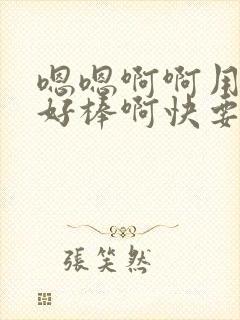 嗯嗯啊啊用
好棒啊快要
張笑然